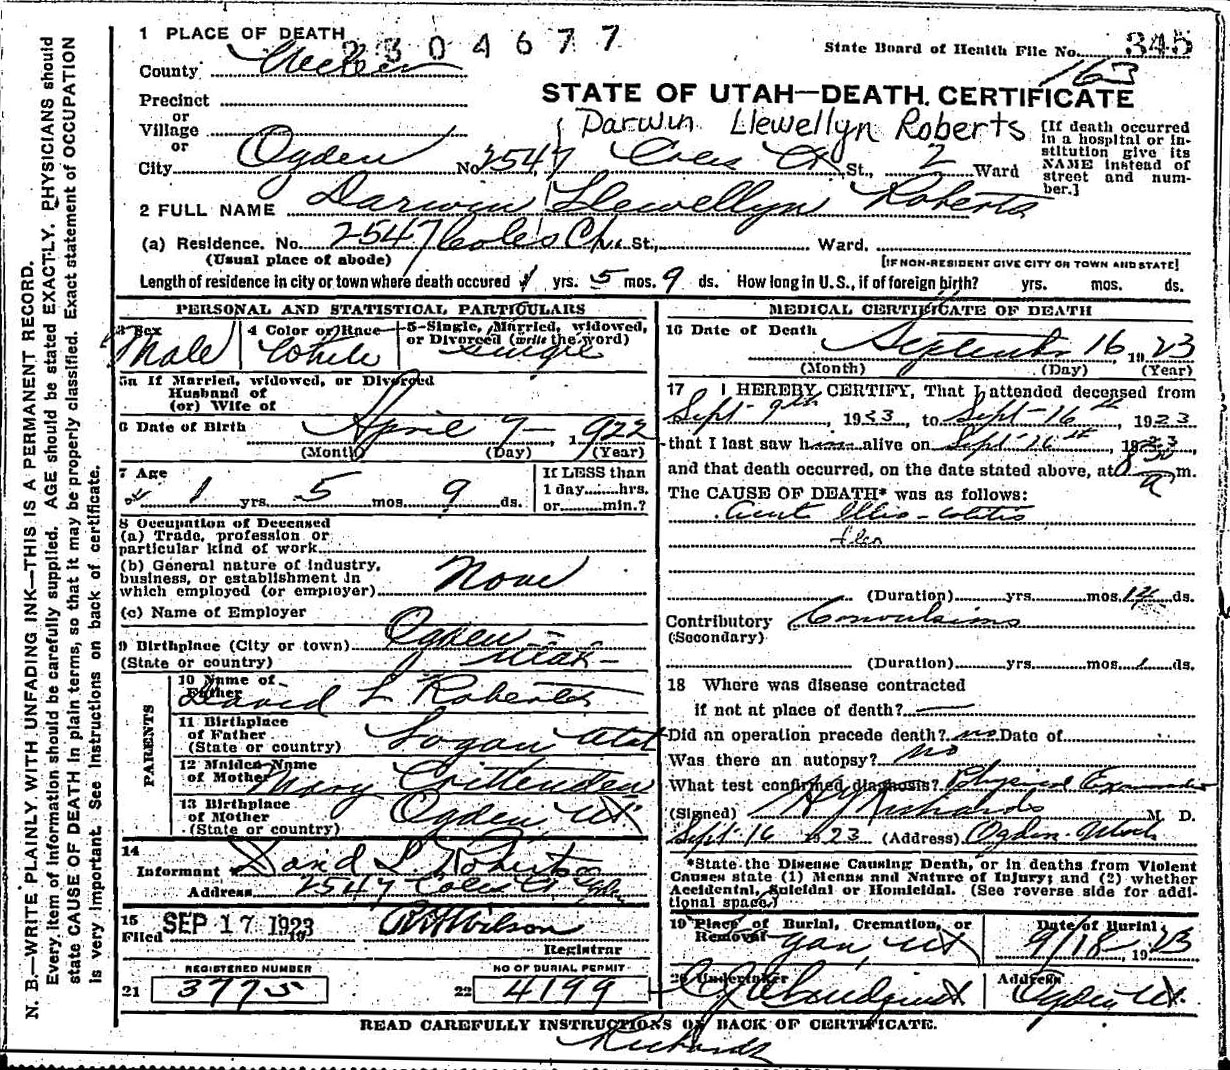 1 PLACE OF DEATH
2304677
State Board of Health File No. 345
163
County Weber
STATE OF UTAH—DEATH CERTIFICATE
Precinct
or
Village
or
Darwin Llewellyn Roberts
City Ogden No. 2547 Coles Ct St., 2 Ward
[If death occurred in a hospital or institution give its NAME instead of street and number.]
2 FULL NAME Darwin Llewellyn Roberts
(a) Residence. No. 2547 Coles St., Ward.
(Usual place of abode)
[IF NON-RESIDENT GIVE CITY OR TOWN AND STATE]
Length of residence in city or town where death occured 1 yrs. 5 mos. 9 ds. How long in U.S., if of foreign birth? yrs. mos. ds.
PERSONAL AND STATISTICAL PARTICULARS
3 Sex Male
4 Color or Race White
5-Single, Married, widowed, or Divorced (write the word) Single
5a If Married, widowed, or Divorced
Husband of
(or) Wife of
6 Date of Birth April 7 - 1922
(Month) (Day) (Year)
7 Age 1 yrs. 5 mos. 9 ds.
If LESS than
1 day......hrs.
or......min.?
8 Occupation of Deceased
(a) Trade, profession or
particular kind of work
(b) General nature of industry,
business, or establishment in
which employed (or employer) None
(c) Name of Employer
9 Birthplace (City or town) Ogden
(State or country) Utah
PARENTS
10 Name of Father David L Roberts
11 Birthplace of Father (State or country) Logan Utah
12 Maiden Name of Mother Mary Crittenden
13 Birthplace of Mother (State or country) Ogden Ut
14
Informant David L Roberts
Address 2547 Coles Ct Ogden
15
Filed SEP 17 1923 Wilson
Registrar
REGISTERED NUMBER
21 3775
NO OF BURIAL PERMIT
22 4199
MEDICAL CERTIFICATE OF DEATH
16 Date of Death September 16 1923
(Month) (Day) (Year)
17 I HEREBY CERTIFY, That I attended deceased from
Sept 9th, 1923, to Sept 16th 1923
that I last saw him alive on Sept 16th, 1923
and that death occurred, on the date stated above, at 8 30 a m.
The CAUSE OF DEATH* was as follows:
Illio-colitis
(Duration) yrs. mos. ds.
Contributory Convulsions
(Secondary)
(Duration) yrs. mos. 1 ds.
18 Where was disease contracted
if not at place of death?
Did an operation precede death? no Date of
Was there an autopsy? no
What test confirmed diagnosis? Physical
(Signed) Richards M. D.
Sept 16 1923 (Address) Ogden Utah
*State the Disease Causing Death, or in deaths from Violent
Causes state (1) Means and Nature of Injury; and (2) whether
Accidental, Suicidal or Homicidal. (See reverse side for additional space.)
19 Place of Burial, Cremation, or Removal Ut
Date of Burial 9/18, 1923
20 Undertaker
Address Ogden Ut.
READ CAREFULLY INSTRUCTIONS ON BACK OF CERTIFICATE.
Richards
N. B.—WRITE PLAINLY WITH UNFADING INK—THIS IS A PERMANENT RECORD.
Every item of information should be carefully supplied. AGE should be stated EXACTLY. PHYSICIANS should
state CAUSE OF DEATH in plain terms, so that it may be properly classified. Exact statement of OCCUPATION
is very important. See instructions on back of certificate.